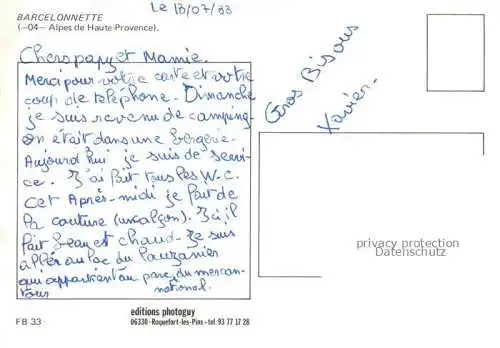 Le 13/07/83
BARCELONNETTE
(–04– Alpes de Haute-Provence).
Chers papy et Mamie.
Merci pour votre carte et votre
coup de téléphone. Dimanche
je suis revenu de camping-
on était dans une bergerie.
Aujourd'hui je suis de servi-
ce. J'ai fait tous les W.C.
cet Après-midi je fait de
la couture (un calçon). Ici il
fait beau et chaud. Je suis
allé au lac du Lauzanier
qui appartient au parc du mercan-
tour national.
Gros Bisous
Xavier.
privacy protection
Datenschutz
editions photoguy
06330-Roquefort-les-Pins-tel.93 77 17 28
FB 33